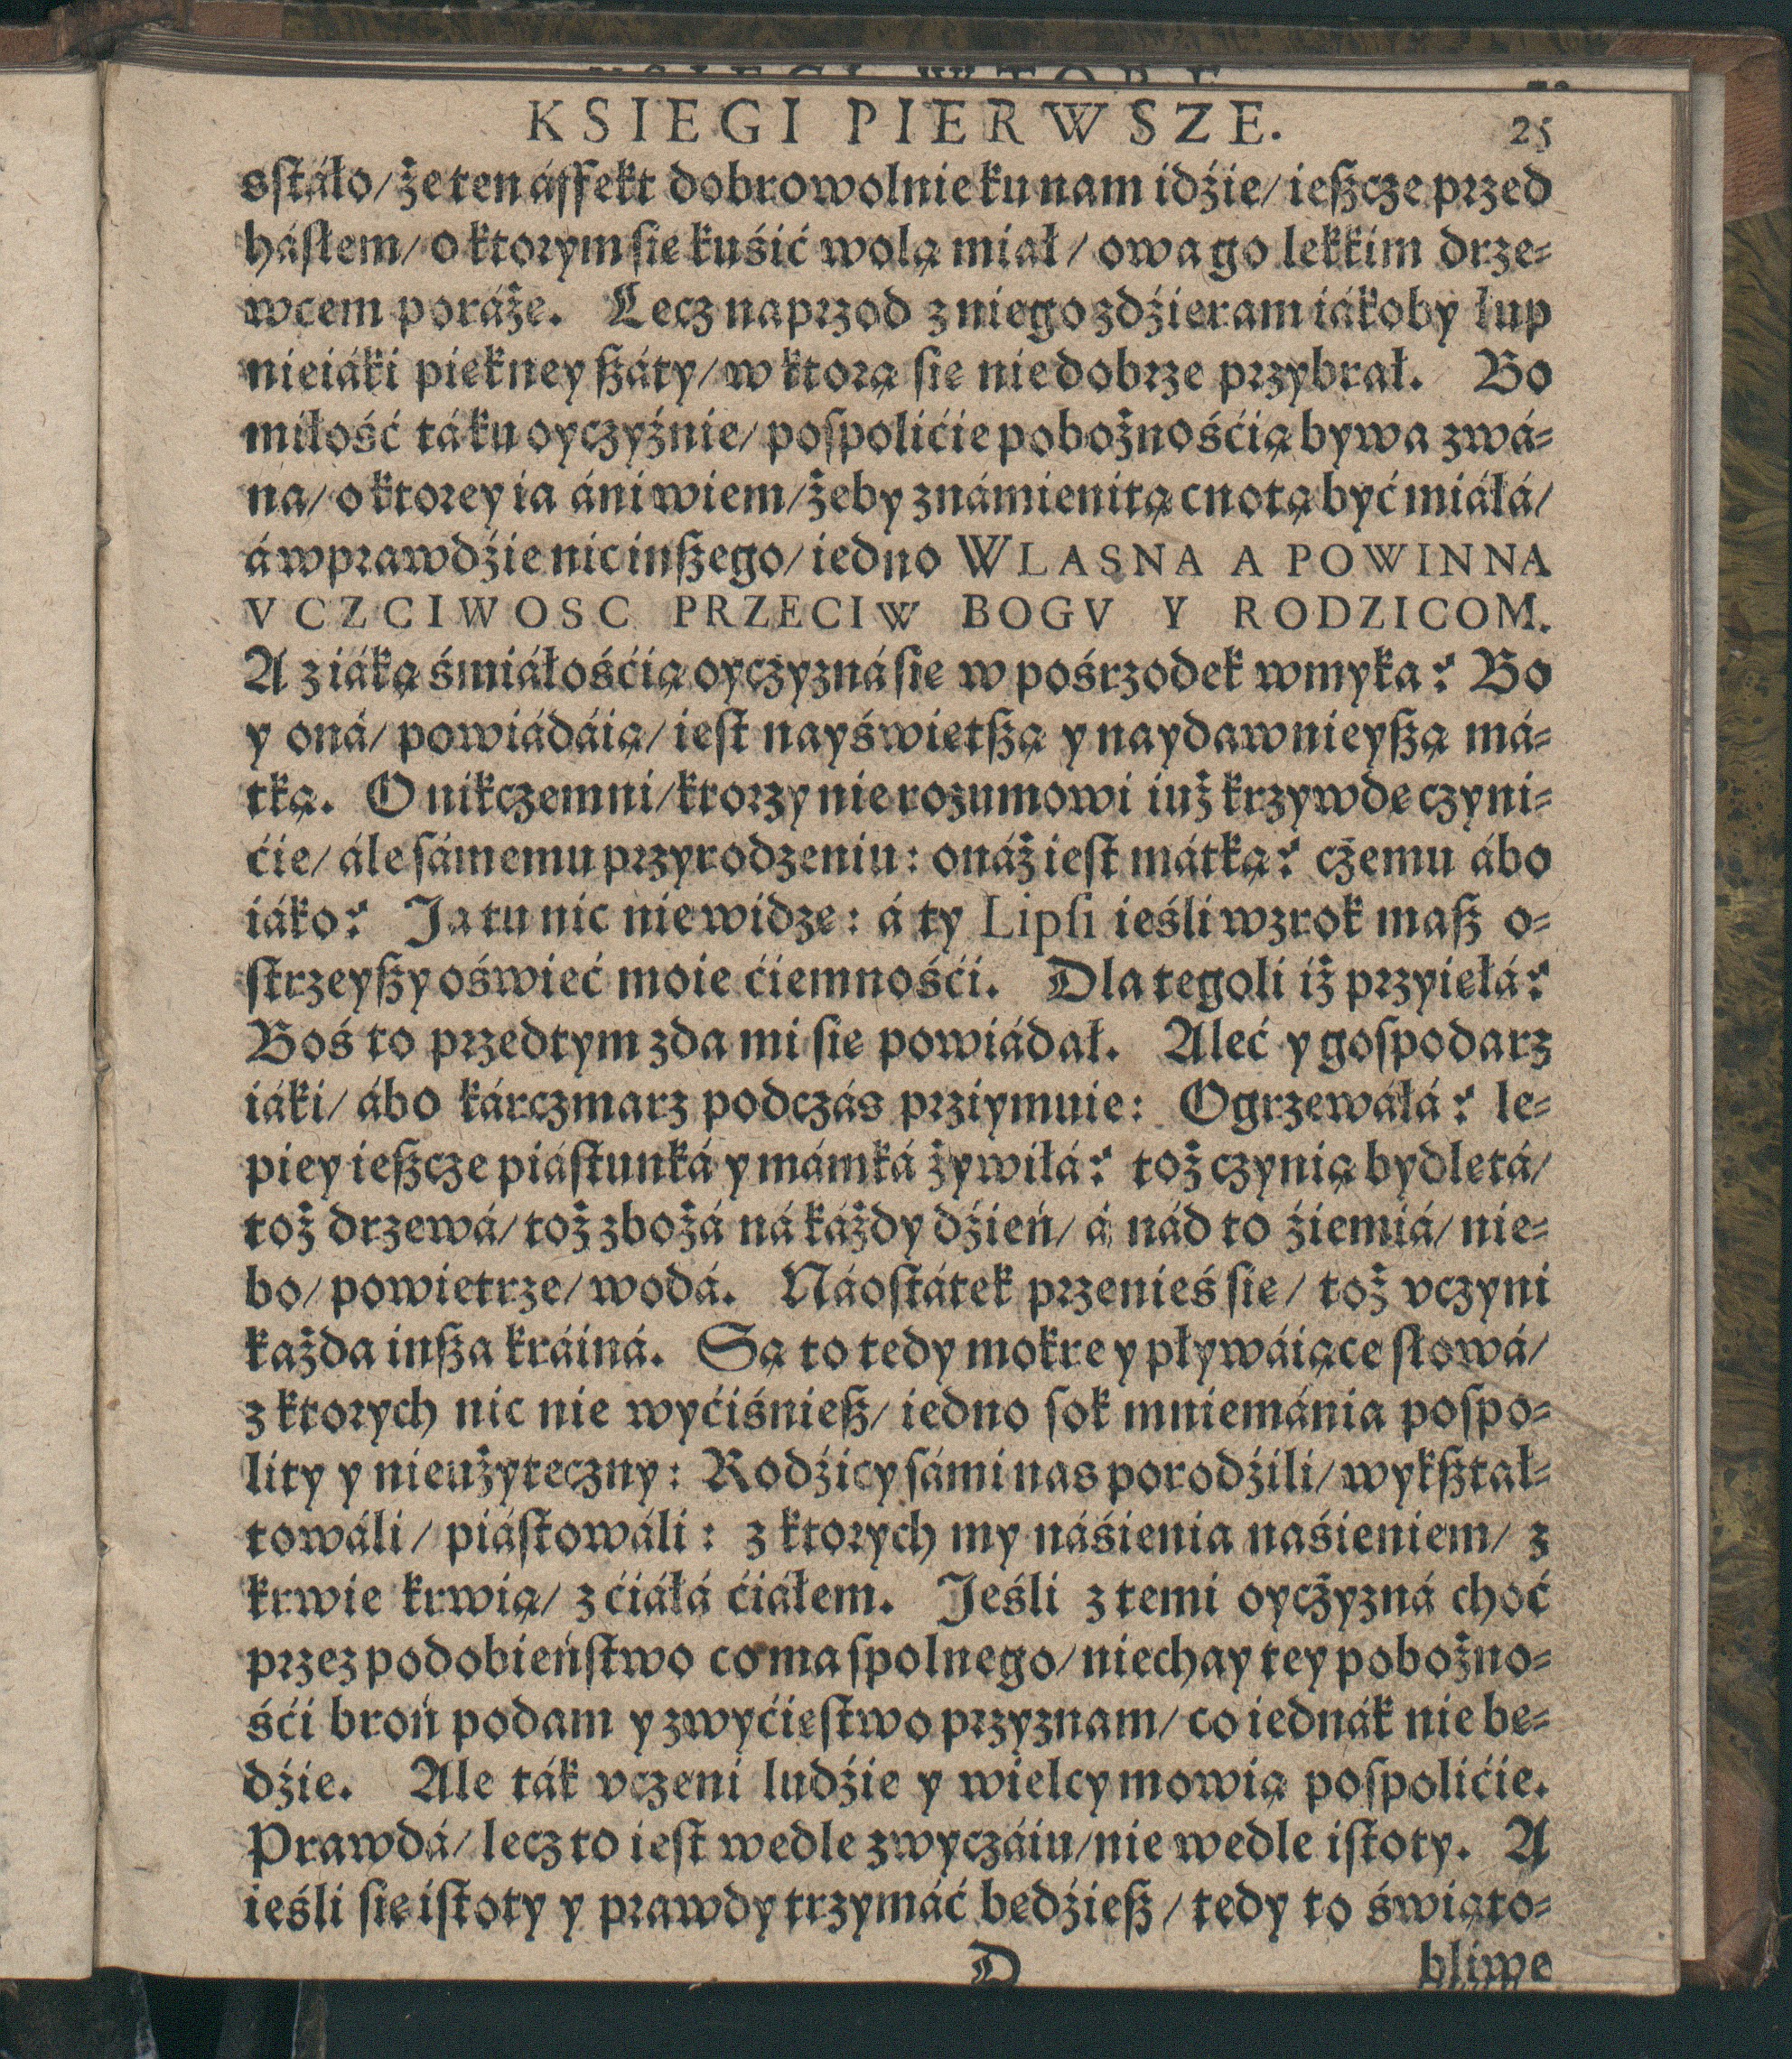 KSIEGI PIERWSZE. 25
sſtáło/ że ten áffekt dobrowolnie ku nam idźie/ ieſzcze przed
háſłem/ o ktorym ſie kuśić wolą miał/ owa go lekkim drze-
wcem poráże. Lecz naprzod z niego zdźieram iákoby łup
nieiáki piekney ſzáty/ w ktorą ſie niedobrze przybrał. Bo
miłość tá ku oyczyźnie/ poſpolićie pobożnośćią bywa zwá-
na/ o ktorey ia áni wiem/ żeby známienitą cnotą być miáłá/
á wprawdźie nic inſzego/ iedno WLASNA A POWINNA
VCZCIWOSC PRZECIW BOGV Y RODZICOM.
A z iáką śmiáłośćią oyczyzná ſie w pośrzodek wmyka? Bo
y oná/ powiádáią/ ieſt nayświetſzą y naydawnieyſzą má-
tką. O nikczemni/ ktorzy nie rozumowi iuż krzywdę czyni-
ćie/ ále ſámemu przyrodzeniu: onáż ieſt mátką? czemu ábo
iáko? Ja tu nic nie widzę: á ty Lipſi ieśli wzrok maſz o-
ſtrzeyſzy oświeć moie ćiemnośći. Dla tegoli iż przyięłá?
Boś to przedtym zda mi ſie powiádał. Aleć y goſpodarz
iáki/ ábo kárczmarz podczás prziymuie: Ogrzewáłá? le-
piey ieſzcze piáſtunká y mámká żywiłá? toż czynią bydlętá/
toż drzewá/ toż zbożá ná káżdy dźień/ á nád to źiemiá/ nie-
bo/ powietrze/ wodá. Náoſtátek przenieś ſie/ toż vczyni
każda inſza kráiná. Są to tedy mokre y pływáiące ſłowá/
z ktorych nic nie wyćiśnieſz/ iedno ſok mniemánia poſpo-
lity y nieużyteczny: Rodźicy ſámi nas porodźili/ wykſztał-
towáli/ piáſtowáli: z ktorych my náśienia naśieniem/ z
krwie krwią/ z ćiáłá ćiáłem. Jeśli z temi oyczyzná choć
przez podobieńſtwo co ma ſpolnego/ niechay tey pobożno-
śći broń podam y zwyćięſtwo przyznam/ co iednák nie bę-
dźie. Ale ták vczeni ludźie y wielcy mowią poſpolićie.
Prawdá/ lecz to ieſt wedle zwyczáiu/ nie wedle iſtoty. A
ieśli ſię iſtoty y prawdy trzymáć będźieſz/ tedy to świąto-
D bliwe